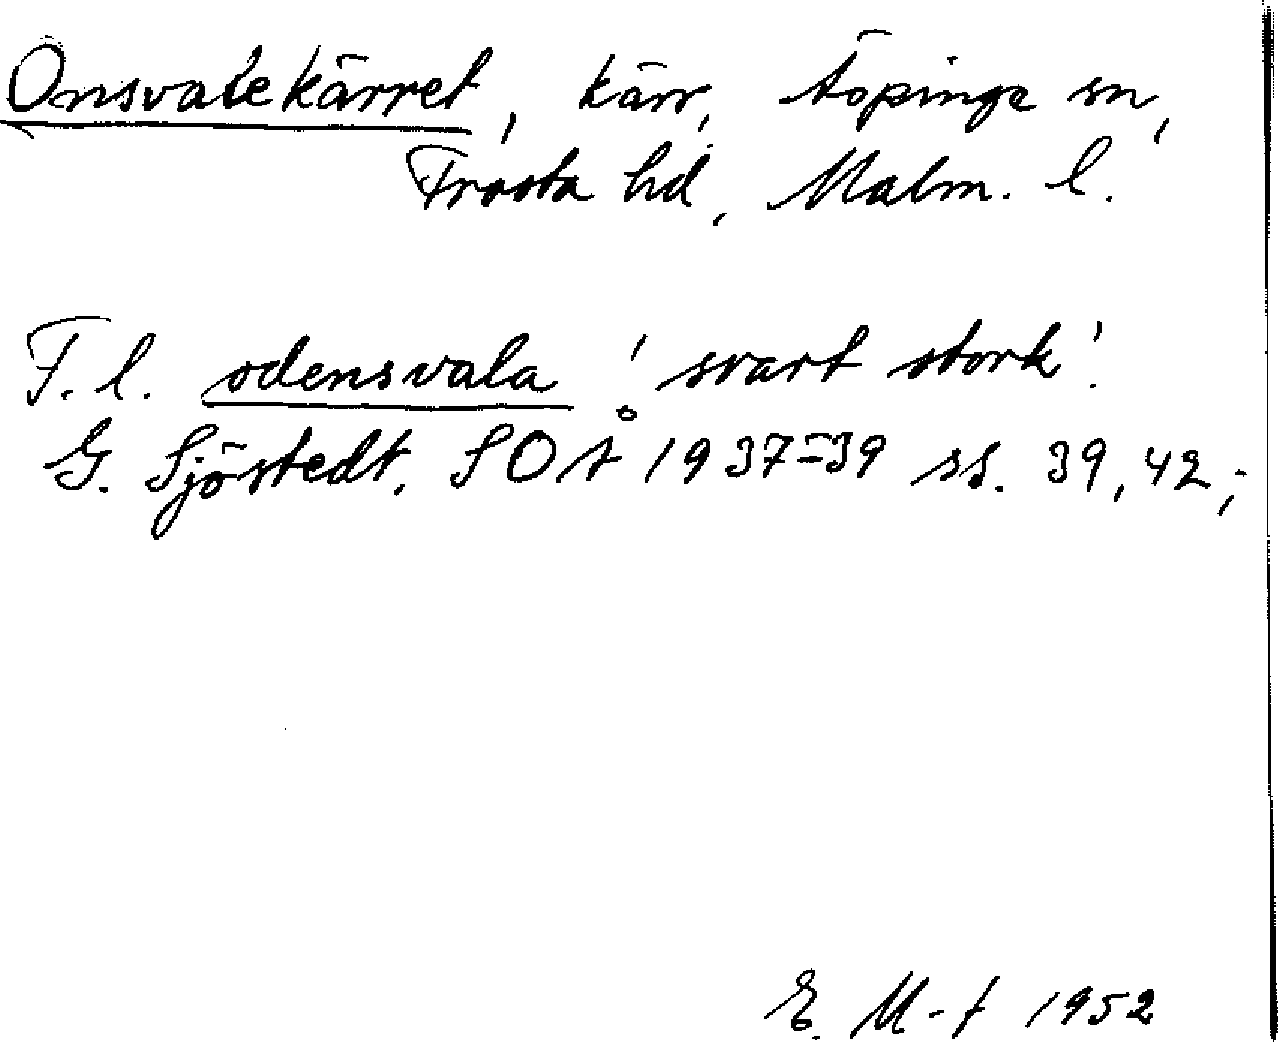 Onsvalekärret, kärr, Äspinge sn,
Frosta hd, Malm. l.
F. l. odensvala 'svart stork'.
G. Sjöstedt, SOÅ 1937-39 ss. 39, 42,
E. M-f 1952